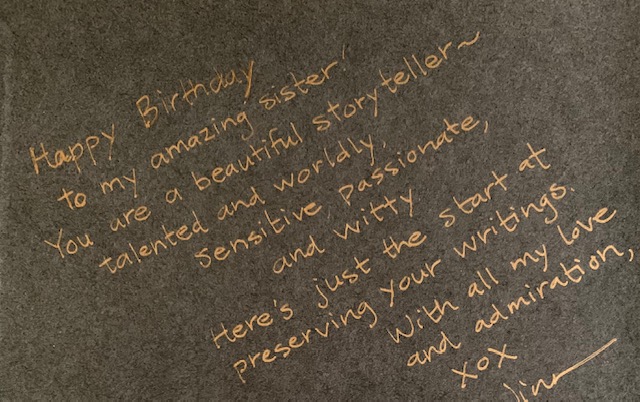 Happy Birthday
to my amazing sister!
You are a beautiful storyteller~
talented and worldly,
sensitive, passionate,
and witty
Here's just the start at
preserving your writings.
With all my love
and admiration,
xox